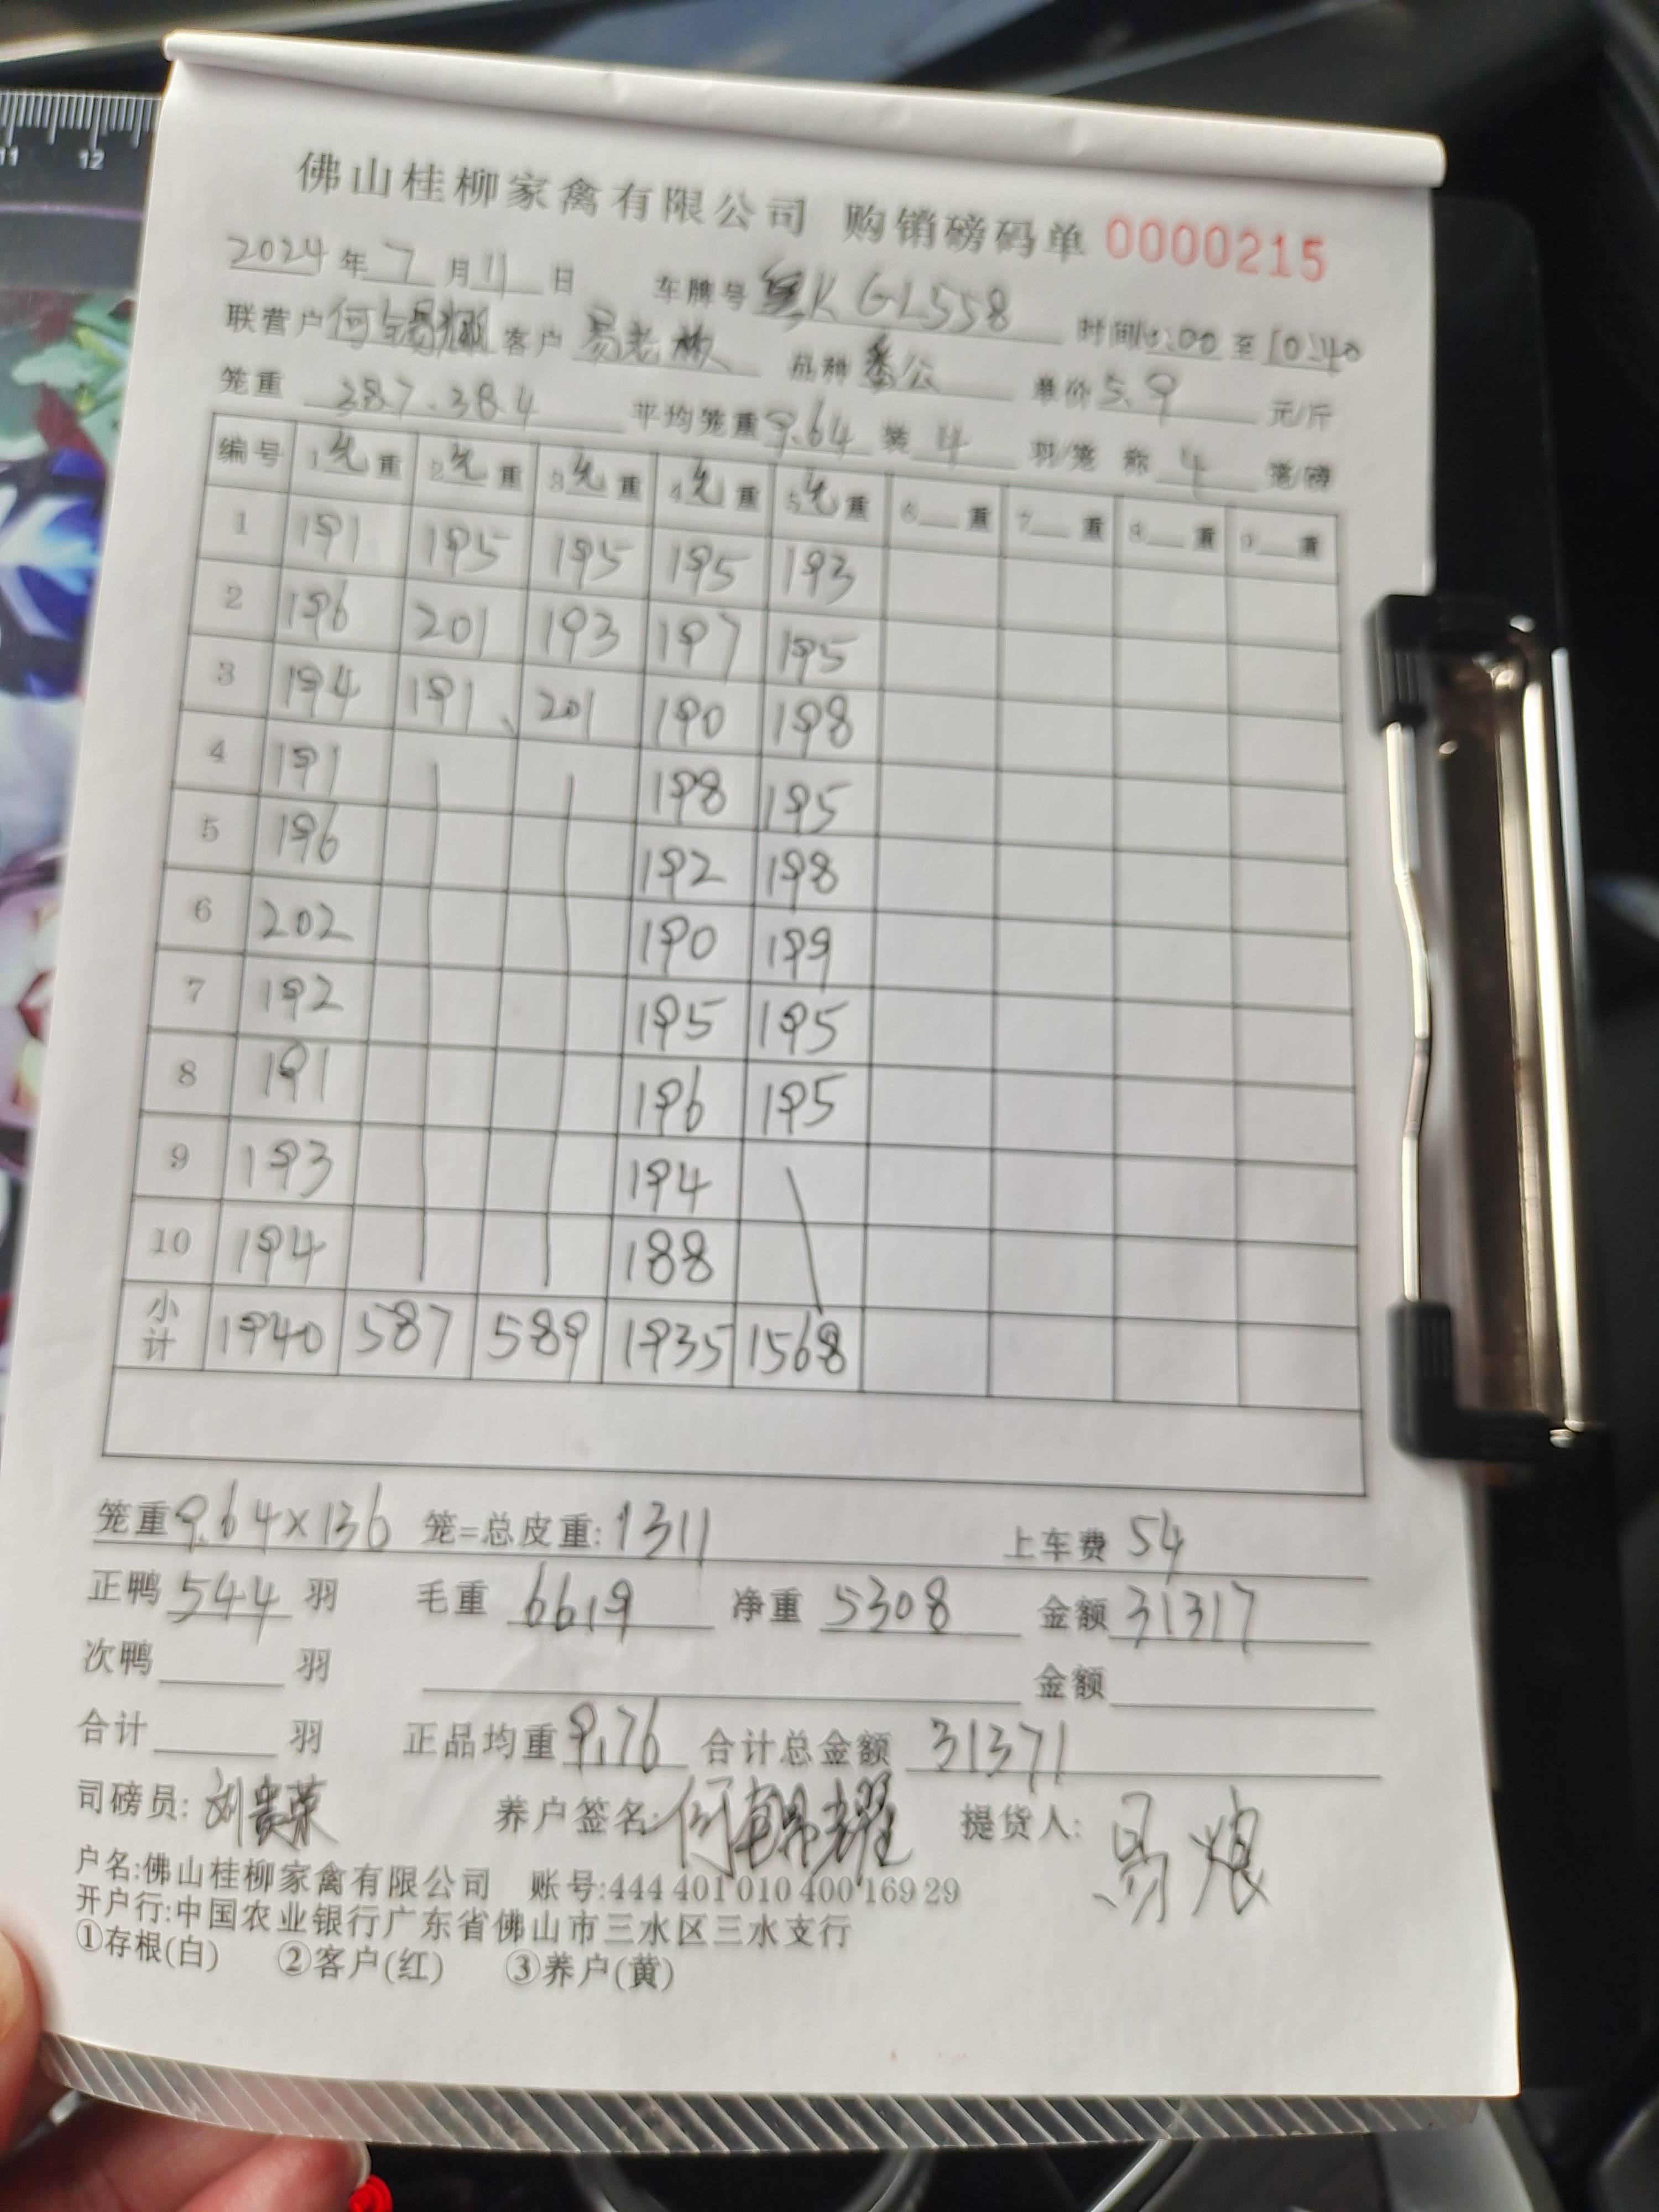 11 12
佛山桂柳家禽有限公司 购销磅码单 0000215
2024年7月11日 车牌号 KGL558
联营户 何锡 客户 易老板 品种 番公 时间 :00 至 10:40
笼重 387.384 平均笼重 9.64 装 4 羽/笼 称 4 笼/磅 单价 5.9 元/斤
编号 1 重 2 重 3 重 4 重 5 重 6 重 7 重 8 重 9 重
1 191 195 195 195 193
2 196 201 193 197 195
3 194 191 201 190 198
4 191 198 195
5 196 192 198
6 202 190 199
7 192 195 195
8 191 196 195
9 193 194
10 194 188
小计 1940 587 589 1935 1568
笼重 9.64×136 笼=总皮重: 1311 上车费 54
正鸭 544 羽 毛重 6619 净重 5308 金额 31317
次鸭 羽 金额
合计 羽 正品均重 9.76 合计总金额 31371
司磅员: 刘贵荣 养户签名: 何朝耀 提货人: 易
户名:佛山桂柳家禽有限公司 账号:444 401 010 400 169 29
开户行:中国农业银行广东省佛山市三水区三水支行
①存根(白) ②客户(红) ③养户(黄)